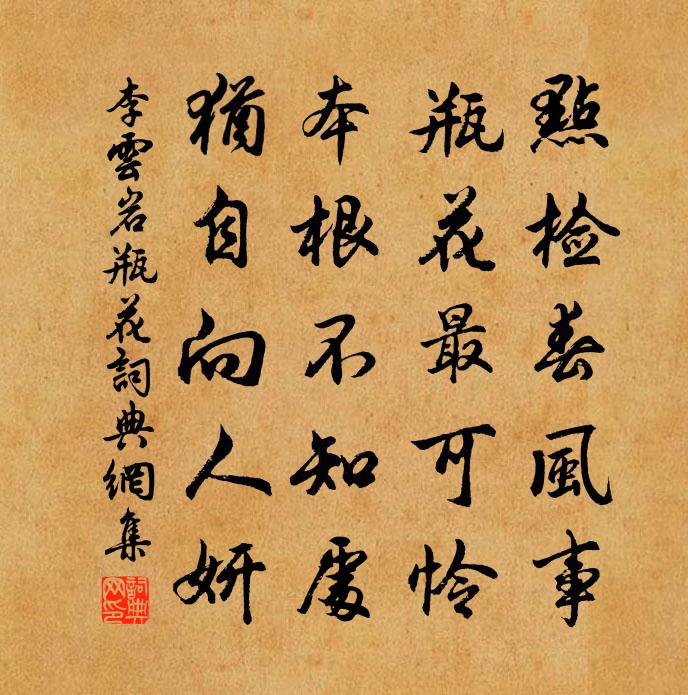 點檢春風事
瓶花最可怜
本根不知處
猶自向人妍
李雲岩瓶花詞典網集
詞典网印